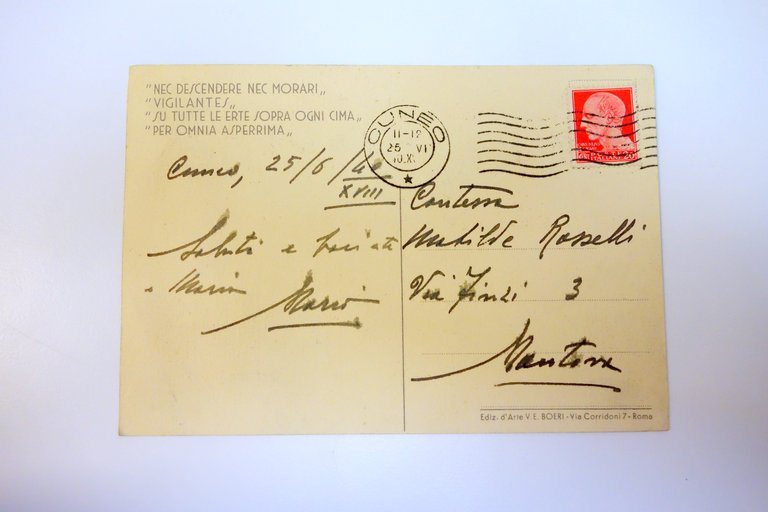 "NEC DESCENDERE NEC MORARI„
"VIGILANTES„
"SU TUTTE LE ERTE SOPRA OGNI CIMA„
"PER OMNIA ASPERRIMA„
Cuneo, 25/6/40
XVIII
Saluti e baci a te
e Maria
Mario
CUNEO
11-12
25 VI
POSTE ITALIANE 20
Contessa
Matilde Rosselli
Via Finzi 3
Mantova
Ediz. d'Arte V. E. BOERI - Via Corridoni 7 - Roma